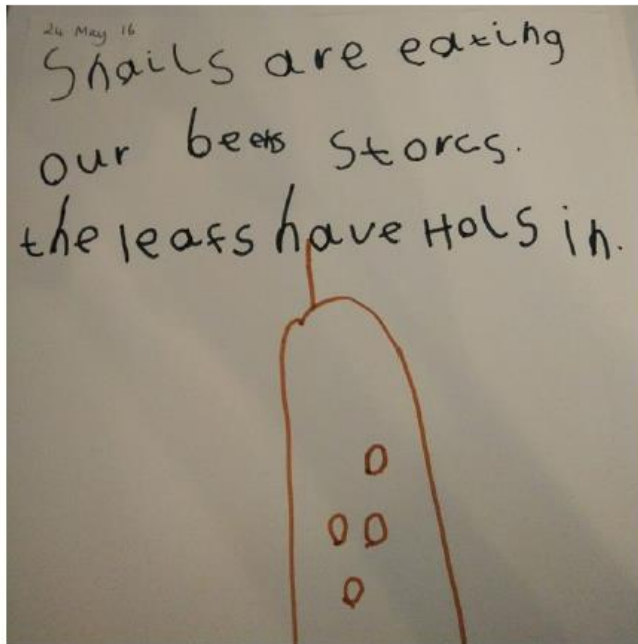 24 May 16
Snails are eating
our beens storcs.
the leafs have Hols in.